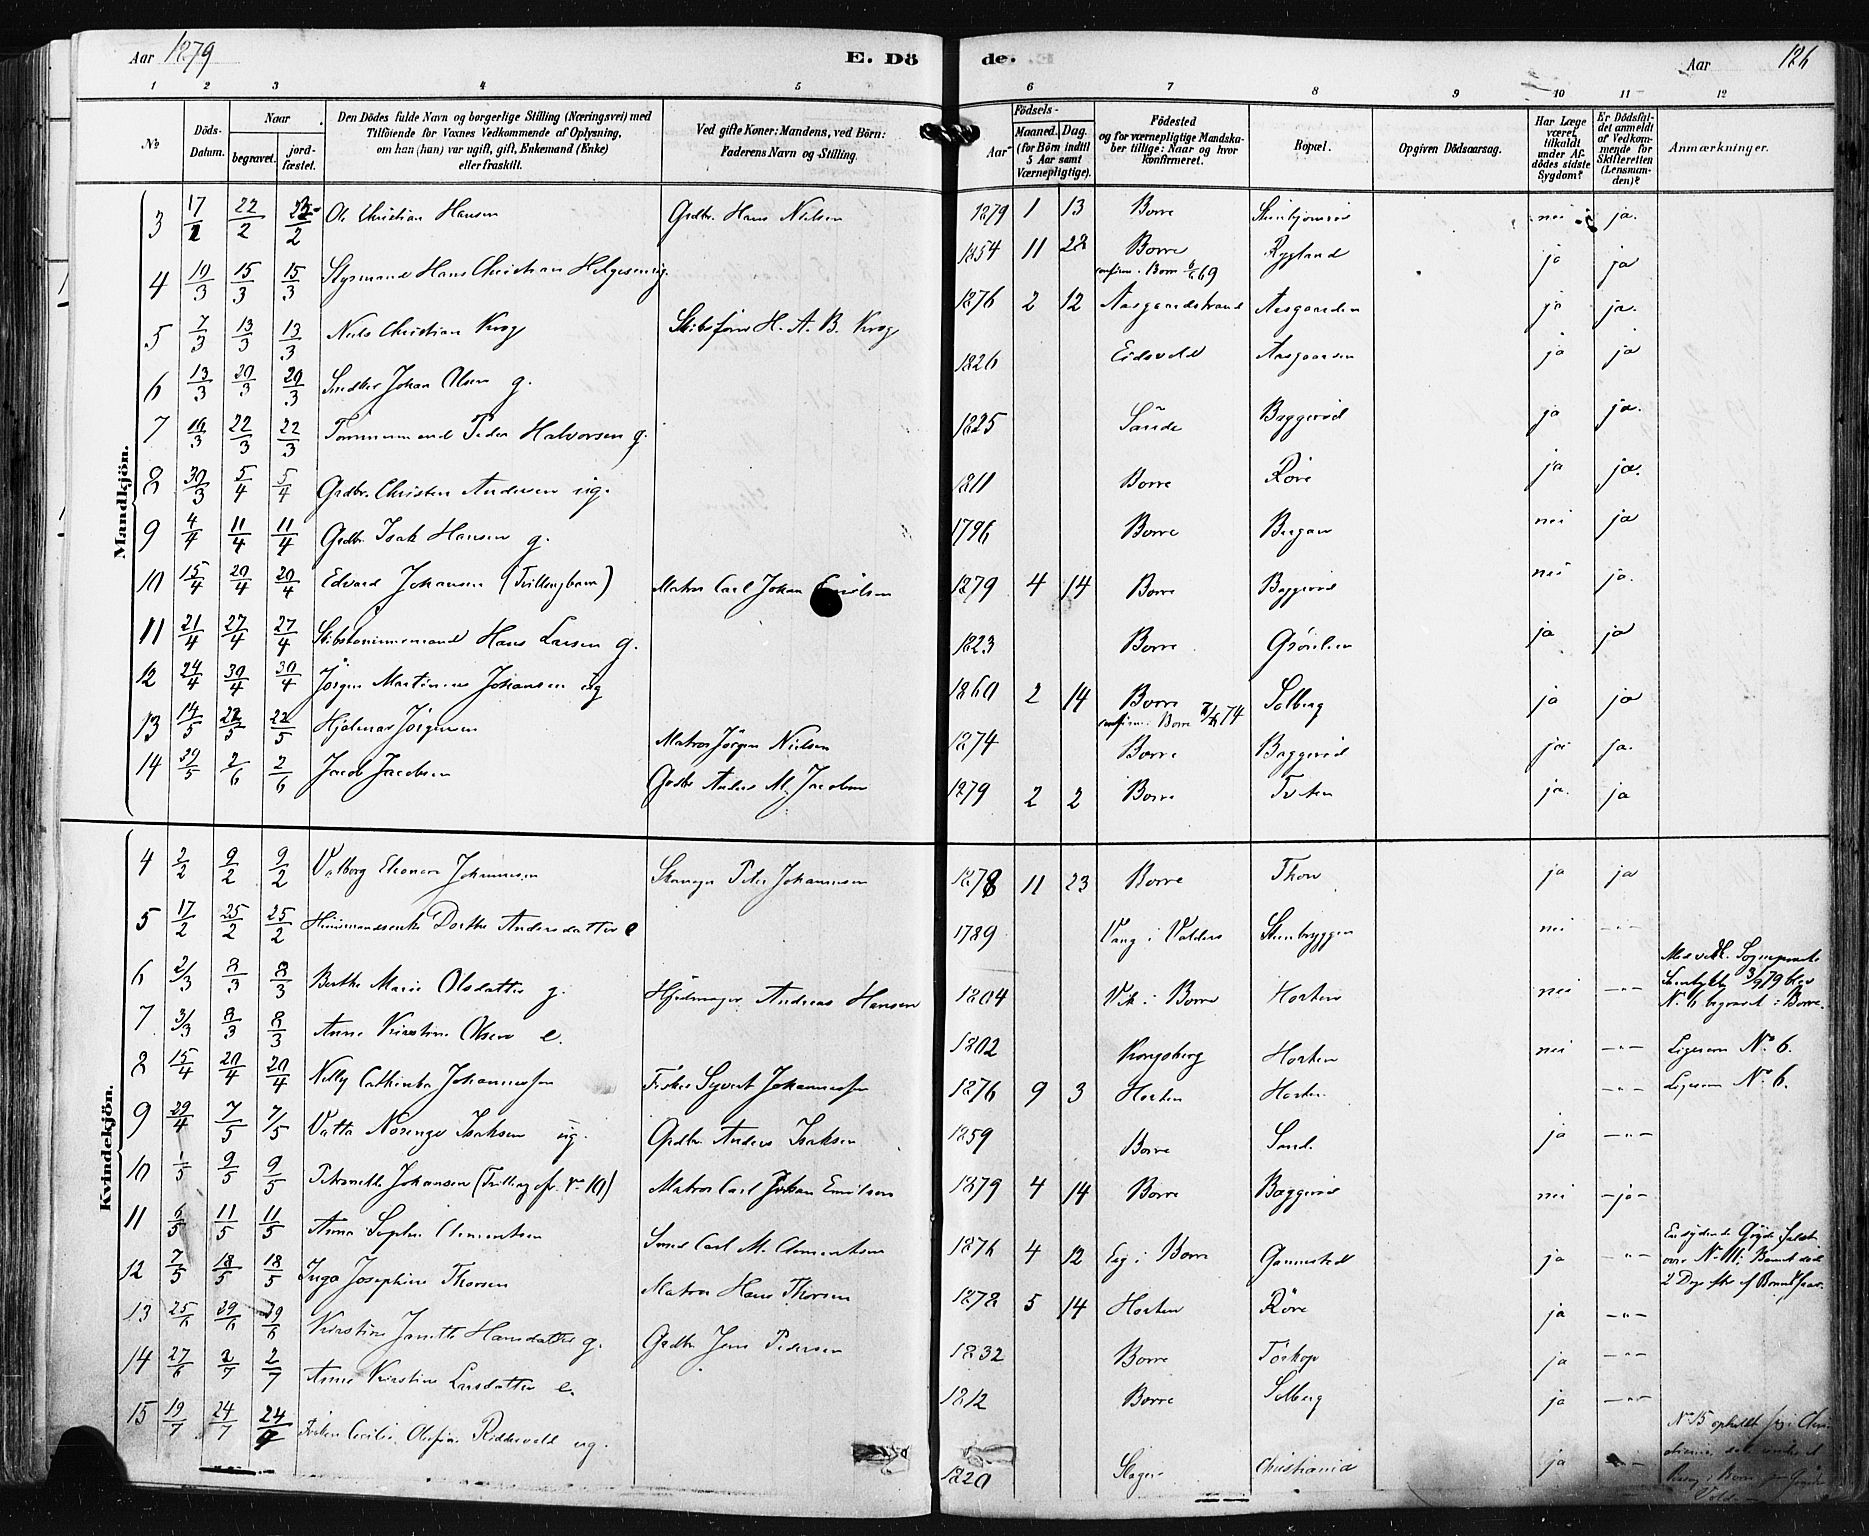 Aar 1879
E. Dö
de.
Aar 126
1 2 3 4 5 6 7 8 9 10 11 12
No
Döds-Datum.
Naar
begravet.
jord-fæstet.
Den Dödes fulde Navn og borgerlige Stilling (Næringsvei) med
Tilföiende for Voxnes Vedkommende af Oplysning,
om han (hun) var ugift, gift, Enkemand (Enke)
eller fraskilt.
Ved gifte Koner: Mandens, ved Börn:
Faderens Navn og Stilling.
Födsels-
Aar
Maaned. Dag.
(for Börn indtil
5 Aar samt
Værnepligtige).
Födested
og for værnepligtige Mandska-
ber tillige: Naar og hvor
konfirmeret.
Bopæl.
Opgiven Dödsaarsag.
Har Læge
været
tilkaldt
under Af-
dödes sidste
Sygdom?
Er Dödsfal-
det anmeldt
af Vedkom-
mende for
Skifteretten
(Lensman-
den)?
Anmærkninger.
Mandkjön.
3 17/2 22/2 22/2 Ole Christian Hansen Grdbr. Hans Nielsen 1879 1 13 Borre nei ja.
4 10/3 15/3 15/3 Styrmand Hans Christian Helgesen ug. 1854 11 28 Borre Rygland ja ja
confirm. Borre 69
5 7/3 13/3 13/3 Niels Christian Krog Skibsförer H. A. B. Krog 1876 2 12 Aasgaardstrand Aasgaarden ja ja.
6 13/3 20/3 20/3 Johan Olsen g. 1826 Eidsvold Aasgaarden ja ja
7 16/3 22/3 22/3 Tömmermand Peder Halvorsen g. 1825 Sande Baggeröd ja ja.
8 30/3 5/4 5/4 Grdbr. Christen Andersen ug. 1811 Borre Röre ja ja.
9 4/4 11/4 11/4 Grdbr. Isak Hansen g. 1796 Borre Bergan nei ja
10 15/4 20/4 20/4 Edvard Johansen (Tvillingbarn) Matros Carl Johan Emilsen 1879 4 14 Borre Baggeröd nei ja.
11 21/4 27/4 27/4 Skibstömmermand Hans Larsen g. 1823 Borre ja ja
12 24/4 30/4 30/4 Jörgen Martinius Johansen ug 1860 2 14 Borre Solberg ja ja
confirm. Borre 74
13 14/5 22/5 22/5 Hjalmar Jörgensen Matros Jörgen Nielsen 1874 Borre Baggeröd ja ja.
14 29/5 2/6 2/6 Jacob Jacobsen Grdbr Anders M. Jacobsen 1879 2 2 Borre ja. ja
Kvindekjön.
4 2/2 9/2 9/2 Valborg Eleonora Johannesen Peter Johannesen 1878 11 23 Borre Thon ja ja
5 17/2 25/2 25/2 Huusmandsenke Dorthe Andersdatter e 1789 Vang i Valders Steenbryggen nei -"-
6 2/3 8/3 8/3 Berthe Marie Olsdatter g. Hjulmager Andreas Hansen 1804 Vik i Borre Horten nei -"- Med vedk. Sogneprests
Samtykke 3/3 79 blev
No 6 begravet i Borre.
7 3/3 8/3 8/3 Anne Kirstine Olsen e. 1802 Kongsberg Horten nei -"- Ligesom No 6.
8 15/4 20/4 20/4 Nelly Cathinka Johannessen Fisker Syvert Johannessen 1876 9 3 Horten Horten -"- Ligesom No 6.
9 29/4 7/5 7/5 Isaksen ug. Grdbr. Anders Isaksen 1859 Borre Sand. ja -"-
10 1/5 9/5 9/5 Petronelle Johansen (Tvilling cfr. No 10) Matros Carl Johan Emilsen 1879 4 14 Borre Baggeröd nei -ja-
11 6/5 11/5 11/5 Anna Sophie Clementsen Smed Carl M. Clementsen 1876 4 12 Eeg i Borre Gannestad ja -"-
12 7/5 18/5 18/5 Inga Josephine Thorsen Matros Hans Thorsen 1878 5 14 Horten Röre ja -"-
13 25/6 29/6 29/6 Kirstine Janette Hansdatter g. Grdbr Jens Pedersen 1832 Borre ja -"-
14 27/6 2/7 2/7 Anne Kirstine Larsdatter e. 1812 Borre Solberg ja -"-
15 19/7 24/7 24/7 Fröken Cecilie Olufine Riddervold ug. 1820 Slagen Christiania ja -"- No 15 opholdt sig i